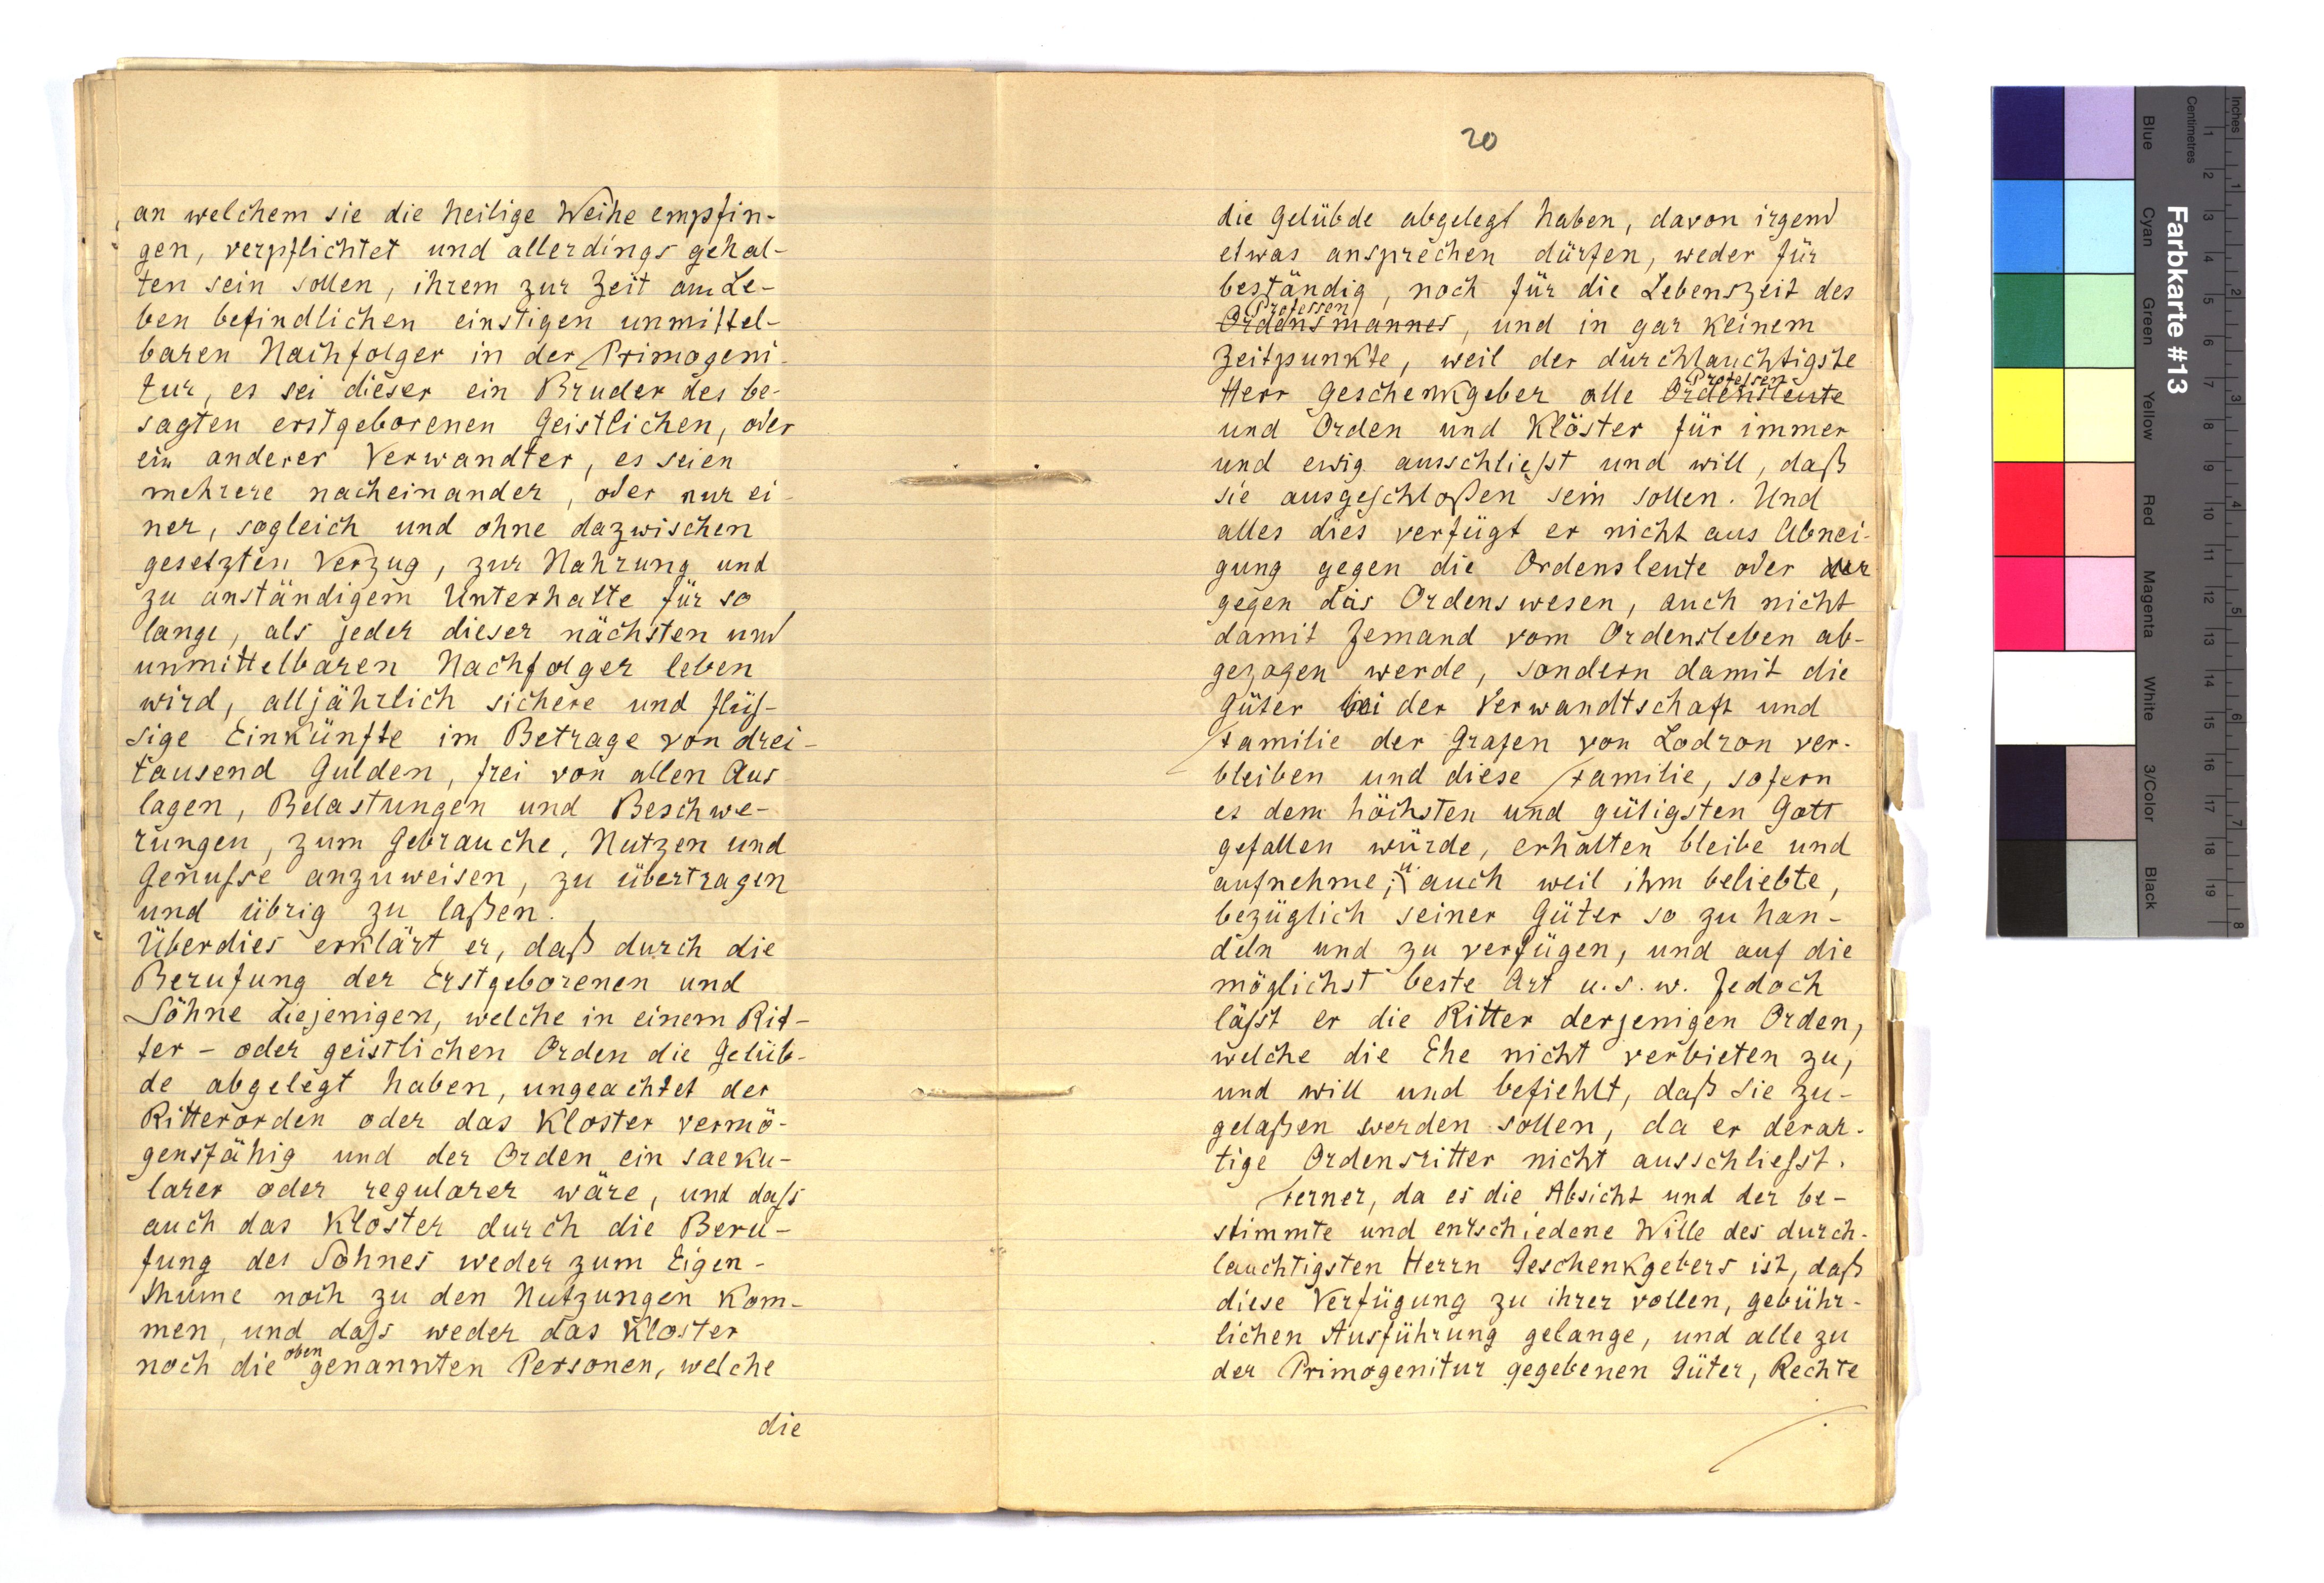 an welchem sie die heilige Weihe empfin-
gen, verpflichtet und allerdings gehal-
ten sein sollen, ihrem zur Zeit am Le-
ben befindlichen einstigen unmittel-
baren Nachfolger in der Primogeni-
tur, es sei dieser ein Bruder des be-
sagten erstgeborenen Geistlichen, oder
ein anderer Verwandter, es seien
mehrere nacheinander, oder nur ei-
ner, sogleich und ohne dazwischen
gesetzten Verzug, zur Nahrung und
zu anständigem Unterhalte für so
lange, als jeder dieser nächsten und
unmittelbaren Nachfolger leben
wird, alljährlich sichere und flüs-
sige Einkünfte im Betrage von drei-
tausend Gulden, frei von allen Aus
lagen, Belastungen und Beschwe-
rungen, zum Gebrauche, Nutzen und
Genusse anzuweisen, zu übertragen
und übrig zu laßen.
Überdies erklärt er, daß durch die
Berufung der Erstgeborenen und
Söhne diejenigen, welche in einem Rit-
ter- oder geistlichen Orden die Gelüb-
de abgelegt haben, ungeachtet der
Ritterorden oder das Kloster vermö-
gensfähig und der Orden ein saeku-
larer oder regularer wäre, und dass
auch das Kloster durch die Beru-
fung des Sohnes weder zum Eigen-
thume noch zu den Nutzungen kom-
men, und dass weder das Kloster
noch die oben genannten Personen, welche
die
20
die Gelübde abgelegt haben, davon irgend
etwas ansprechen dürfen, weder für
beständig, noch für die Lebenszeit des
Professen
Ordensmannes, und in gar keinem
Zeitpunkte, weil der durchlauchtigste
Professen
Herr Geschenkgeber alle Ordensleute
und Orden und Klöster für immer
und ewig ausschliesst und will, daß
sie ausgeschloßen sein sollen. Und
alles dies verfügt er nicht aus Abnei-
gung gegen die Ordensleute oder der
gegen das Ordenswesen, auch nicht
damit Jemand vom Ordensleben ab-
gezogen werde, sondern damit die
Güter bei der Verwandtschaft und
Familie der Grafen von Lodron ver-
bleiben und diese Familie, sofern
es dem höchsten und gütigsten Gott
gefallen würde, erhalten bleibe und
aufnehme; u. auch weil ihm beliebte,
bezüglich seiner Güter so zu han-
deln und zu verfügen, und auf die
möglichst beste Art u.s.w. Jedoch
lässt er die Ritter derjenigen Orden,
welche die Ehe nicht verbieten zu,
und will und befiehlt, daß sie zu-
gelaßen werden sollen, da er derar-
tige Ordensritter nicht ausschliesst.
Ferner, da es die Absicht und der be-
stimmte und entschiedene Wille des durch-
lauchtigsten Herrn Geschenkgebers ist, daß
diese Verfügung zu ihrer vollen, gebühr-
lichen Ausführung gelange, und alle zu
der Primogenitur gegebenen Güter, Rechte
Farbkarte #13
Inches
Centimetres
1 2 3 4 5 6 7 8 9 10 11 12 13 14 15 16 17 18 19
1 2 3 4 5 6 7 8
Blue
Cyan
Green
Yellow
Red
Magenta
White
3/Color
Black